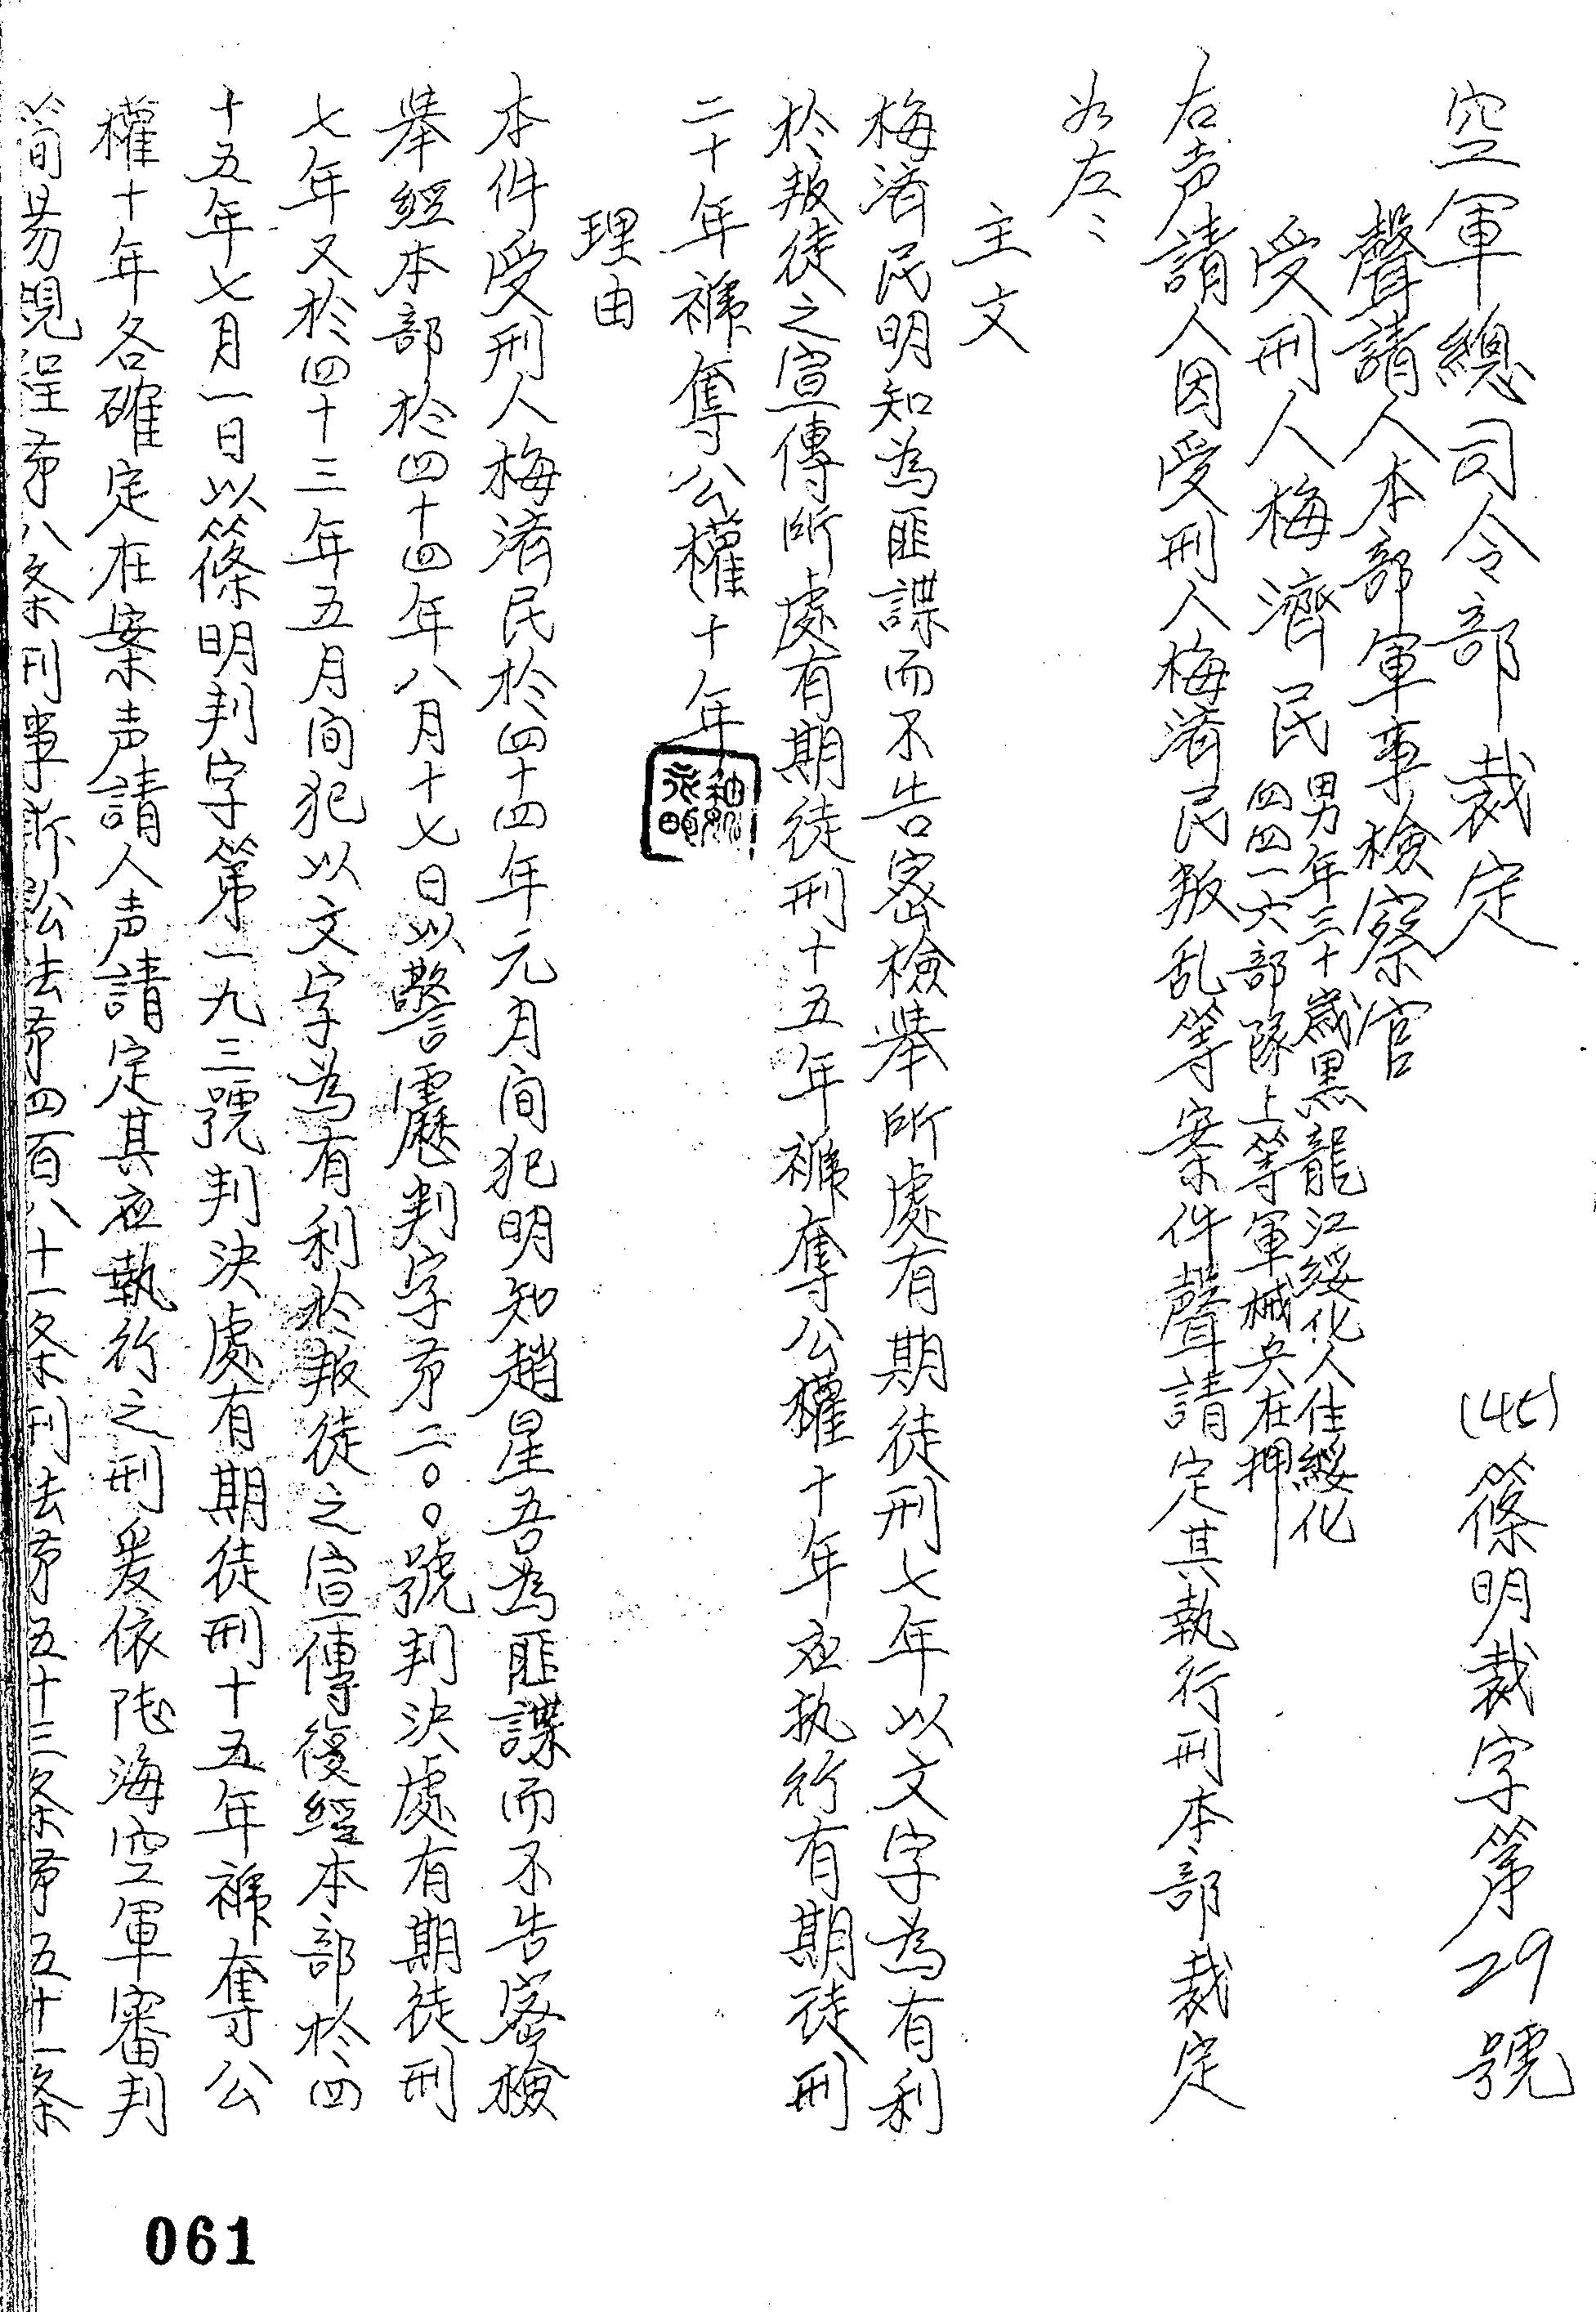 空軍總司令部裁定　(45)篠明裁字第29號
聲請人本部軍事檢察官
受刑人梅濟民男年三十歲黑龍江綏化人住綏化
四四一六部隊上等軍械兵在押
右声請人因受刑人梅濟民叛乱等案件聲請定其執行刑本部裁定
如左：
主文
梅濟民明知為匪諜而不告密檢舉所處有期徒刑七年以文字為有利
於叛徒之宣傳所處有期徒刑十五年褫奪公權十年应执行有期徒刑
二十年褫奪公權十年
理由
本件受刑人梅濟民於四十四年元月间犯明知趙星吾為匪諜而不告密檢
舉經本部於四十四年八月十七日以警靂判字第二〇〇號判決處有期徒刑
七年又於四十三年五月间犯以文字為有利於叛徒之宣傳後經本部於四
十五年七月一日以篠明判字第一九三號判決處有期徒刑十五年褫奪公
權十年各確定在案声請人声請定其应執行之刑爰依陆海空軍審判
簡易規程第八条刑事訴訟法第四百八十一条刑法第五十三条第五十一条
061